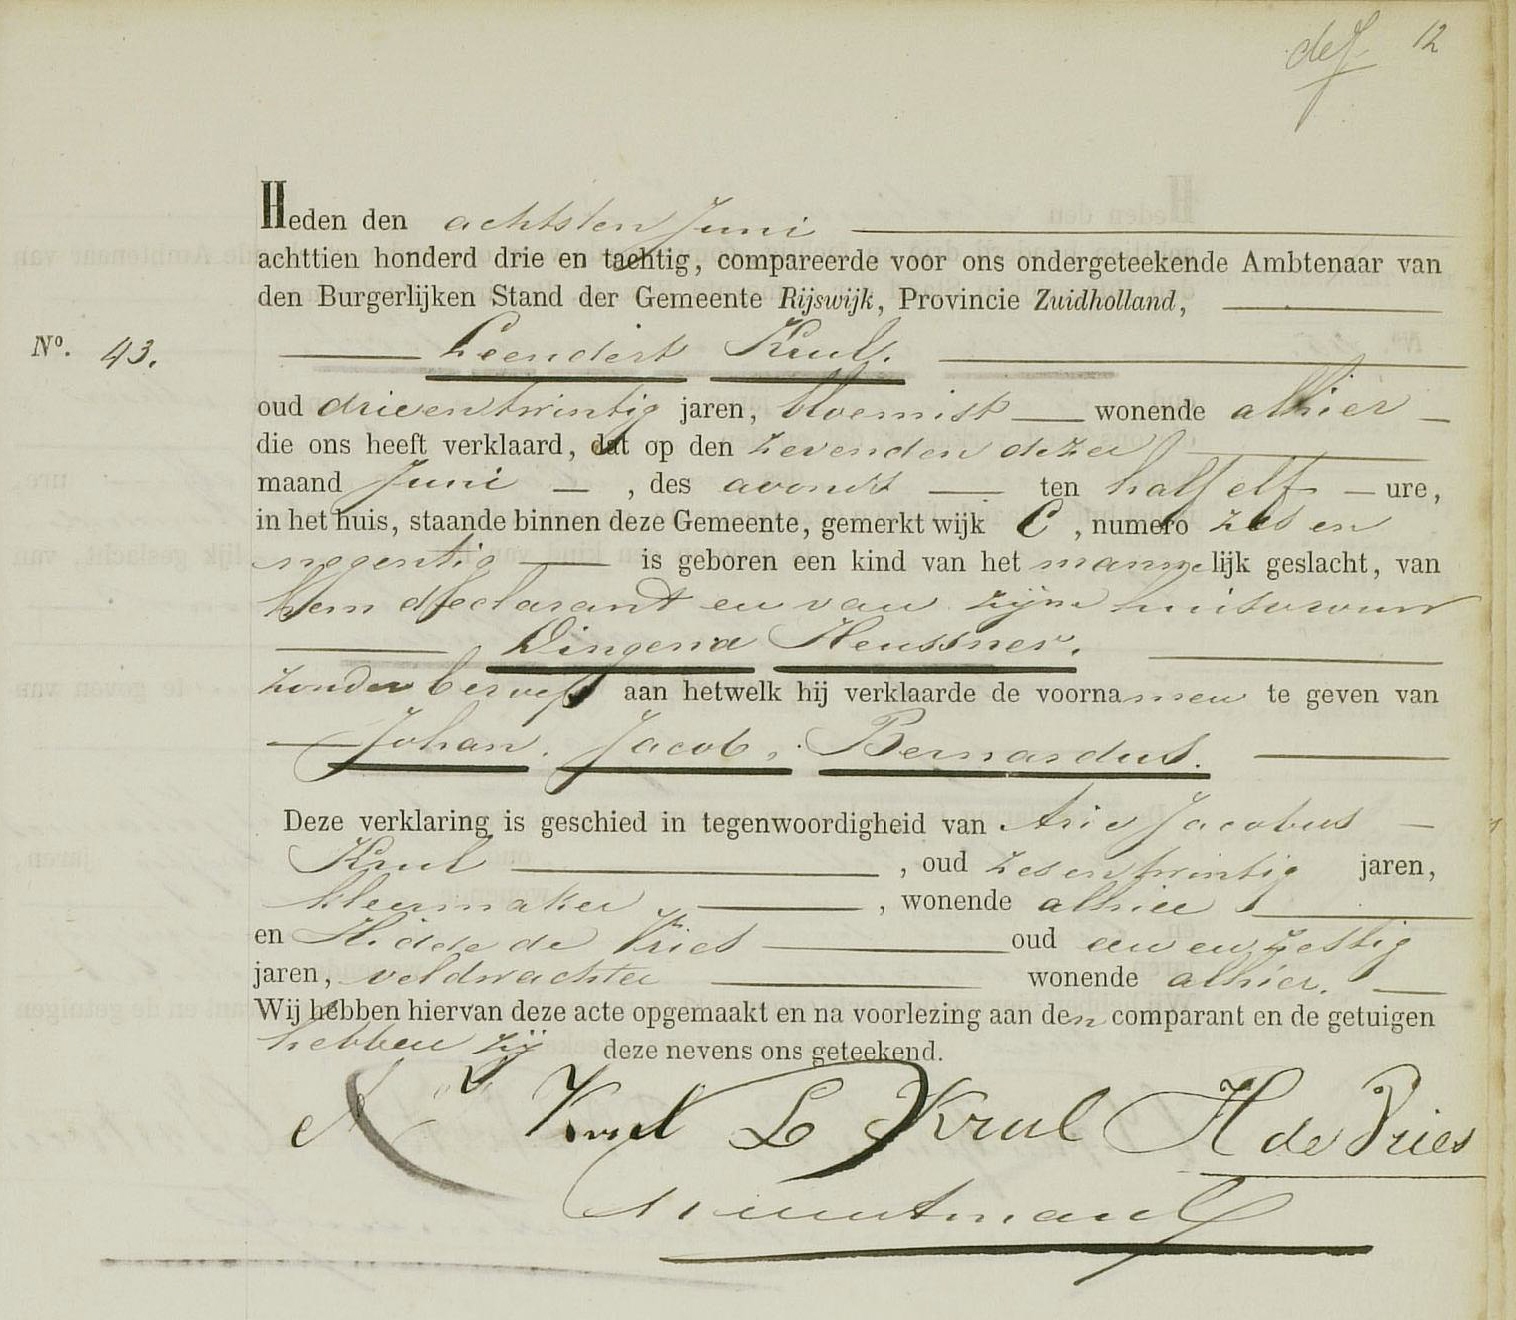 def 12
Heden den achtsten Juni
achttien honderd drie en tachtig, compareerde voor ons ondergeteekende Ambtenaar van
den Burgerlijken Stand der Gemeente Rijswijk, Provincie Zuidholland,
No. 43. Leendert Krul.
oud drieentwintig jaren, bloemist wonende alhier
die ons heeft verklaard, dat op den zevenden dezer
maand Juni, des avonds ten half elf ure,
in het huis, staande binnen deze Gemeente, gemerkt wijk C, numero zes en
negentig is geboren een kind van het mannelijk geslacht, van
hem declarant en van zijne huisvrouw
Dingena Heussner.
zonder beroep aan hetwelk hij verklaarde de voornamen te geven van
Johan. Jacob. Bernardus.
Deze verklaring is geschied in tegenwoordigheid van Arie Jacobus
Krul, oud zesentwintig jaren,
kleermaker, wonende alhier
en Hidde de Vries oud eenenzestig
jaren, veldwachter wonende alhier.
Wij hebben hiervan deze acte opgemaakt en na voorlezing aan den comparant en de getuigen
hebben zij deze nevens ons geteekend.
A J Krul L Krul H de Vries